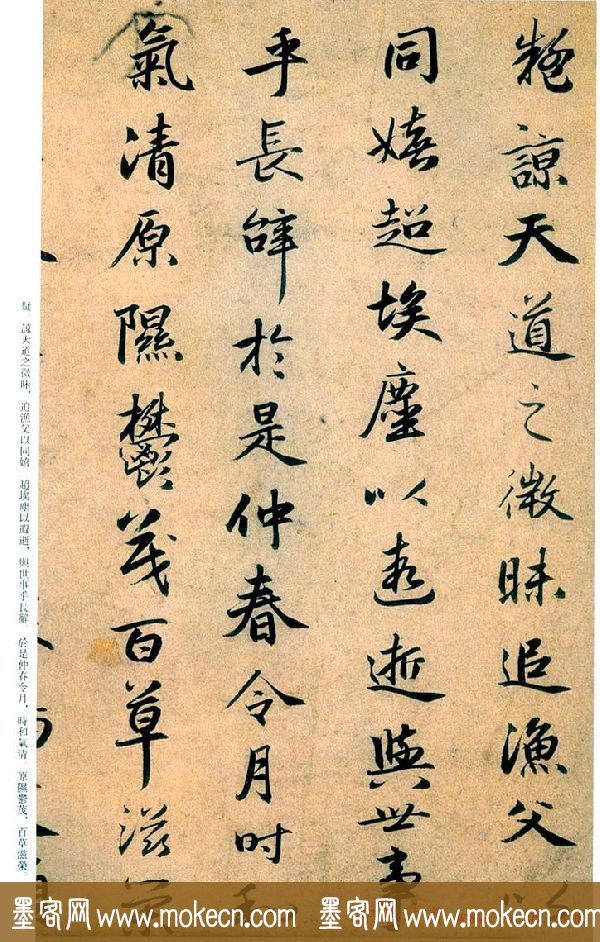 疑諒天道之微昧追漁父以
同嬉超埃塵以遐逝與世事
乎長辭於是仲春令月時和
氣清原隰鬱茂百草滋榮
疑 諒天道之微昧,追漁父以同嬉 超埃塵以遐逝,與世事乎長辭 於是仲春令月,時和氣清 原隰鬱茂,百草滋榮
墨客网 www.mokecn.com 墨客网 www.mokecn.com